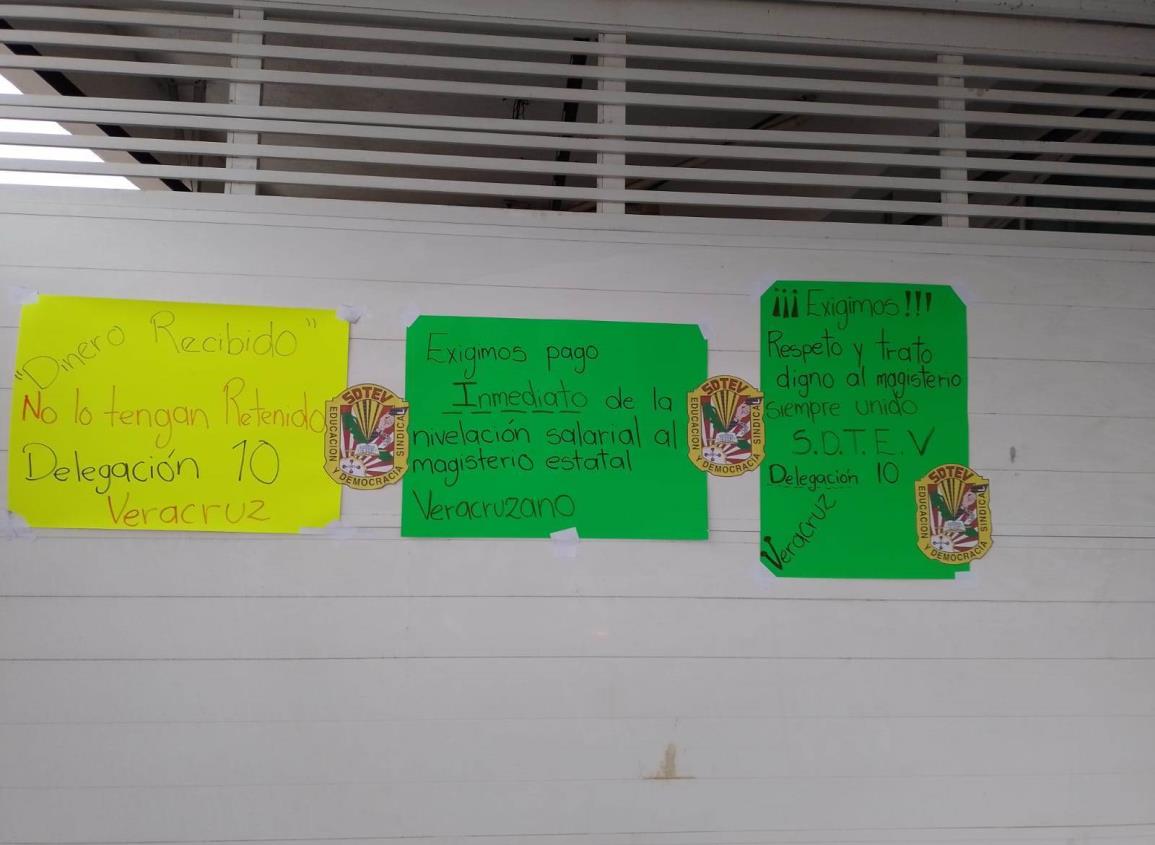 "Dinero Recibido"
No lo tengan Retenido
Delegación 10
Veracruz
SDTEV
EDUCACION Y DEMOCRACIA SINDICAL
Exigimos pago
Inmediato de la
nivelación salarial al
magisterio estatal
Veracruzano
SDTEV
EDUCACION Y DEMOCRACIA SINDICAL
¡¡¡ Exigimos!!!
Respeto y trato
digno al magisterio
siempre unido
S.D.T.E.V
Delegación 10
Veracruz
SDTEV
EDUCACION Y DEMOCRACIA SINDICAL